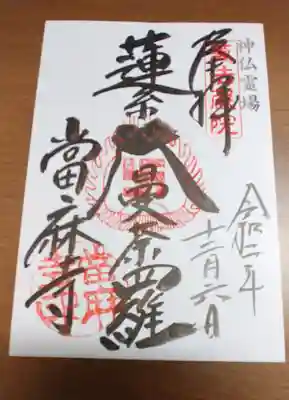 神仏霊場
奉拝
令和二年
十二月六日
蓮糸大曼荼羅
當麻寺